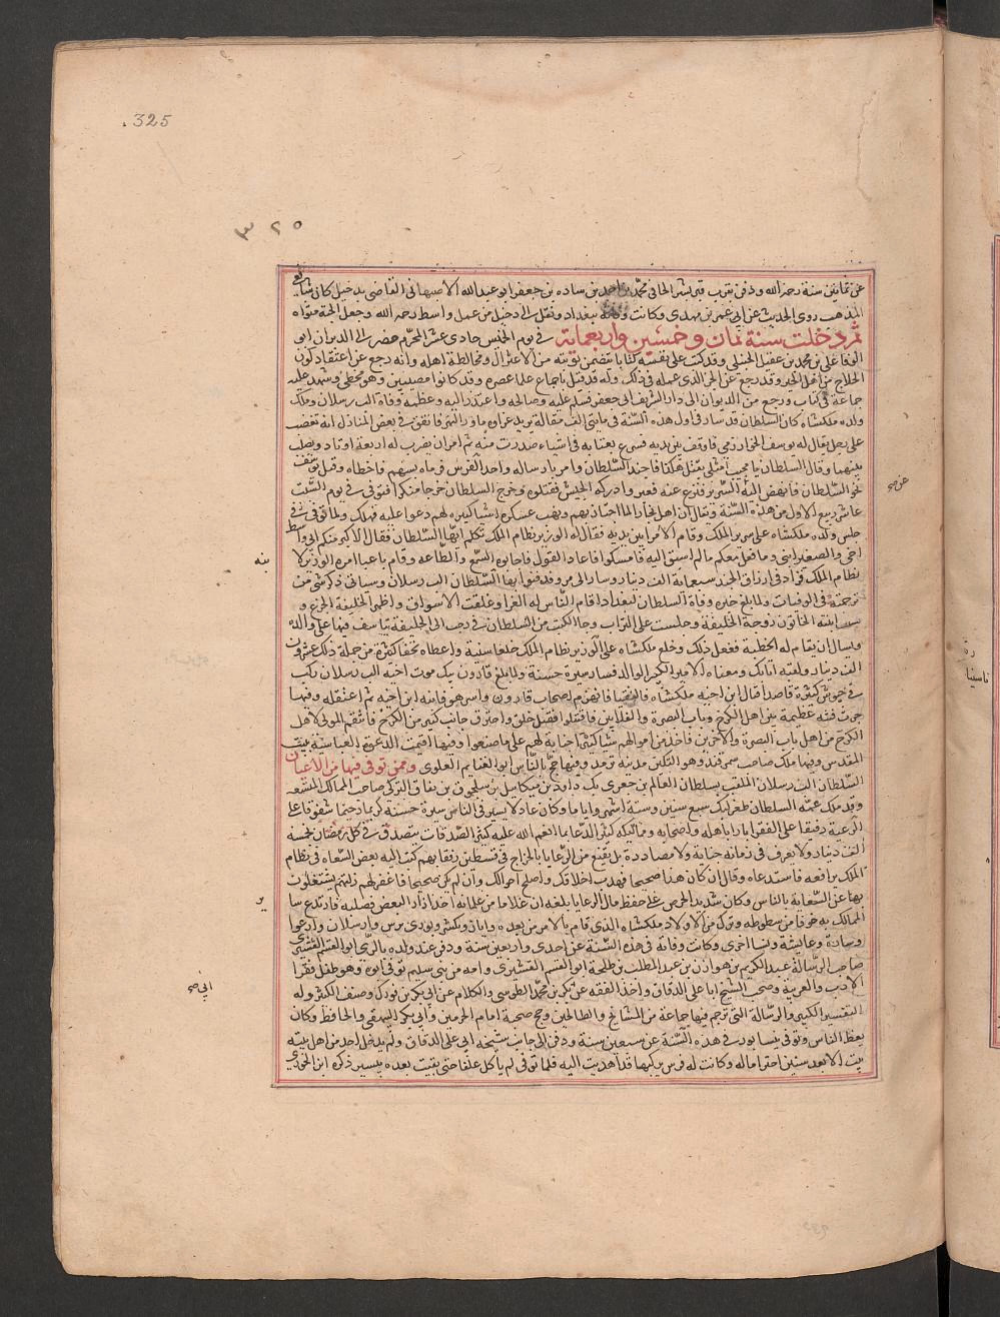 325
٣٢٥
عن ثمانين سنة رحمه الله ودفن بقرب قبر بشر الحافي محمد بن احمد بن ساده بن جعفر ابو عبد الله الاصبهاني القاضي بدجيل كان شافعي
المذهب روى الحديث عن ابي عمر بن مهدي وكانت وفاته ببغداد ونقل الى دجيل من عمل واسط رحمه الله وجعل الجنة مثواه
ثم دخلت سنة ثمان وخمسين واربعماية في يوم الخميس حادي عشر المحرم حضر الى الديوان ابو
الوفا علي بن محمد بن عقيل الحنبلي وقد كتب على نفسه كتابا يتضمن توبته من الاعتزال ومخالطة اهله وانه رجع عن اعتقاد كون
الحلاج من اهل الخير وقد رجع عن الجزء الذي عمله في ذلك وانه قد قتل باجماع علما عصره وقد كانوا مصيبين وهو مخطي وشهد عليه
جماعة في كتاب ورجع من الديوان الى دار الشريف ابي جعفر فسلم عليه وصالحه واعتذر اليه وعظمه وفاة الب رسلان وملك
ولده ملكشاه كان السلطان قد سار في اول هذه السنة في مايتي الف مقاتلة يريد غزاة ما وراء النهر فاتفق في بعض المنازل انه تغضب
على رجل يقال له يوسف الخوارزمي فاوقف بين يديه فشرع يعاتبه في اشياء صدرت منه ثم امر ان يضرب له اربعة اوتاد ويصلب
بينهما وقال للسلطان يا مخنث امثلي يقتل هكذا فاحتد السلطان وامر بارساله واخذ القوس فرماه بسهم فاخطاه وقبل يوسف
نحو السلطان فانهض اليه السرير فنزع عنه فعثر وادركه الجيش فقتلوه وجرح السلطان جرحا منكرا فتوفي في يوم السبت
عاشر ربيع الاول من هذه السنة ويقال ان اهل بخارا لما اجتاز بهم ونهب عسكره اشيا كثيرة لهم دعوا عليه فهلك ولما توفي
جلس ولده ملكشاه على سرير الملك وقام الامرا بين يديه فقال له الوزير نظام الملك تكلم ايها السلطان فقال الاكبر منكم ابي والاوسط
اخي والصغير ابني وسافعل معكم ما لم اسبق اليه فامسكوا فاعاد القول فاجابوه بالسمع والطاعة وقام باعبا امره الوزير
نظام الملك فزاد في ارزاق الجند سبعماية الف دينار وسار الى مرو فدفنوا بها السلطان الب رسلان وسياتي ذكر شي من
ترجمته في الوفيات ولما بلغ خبر وفاة السلطان لبغداد اقام الناس له العزا وغلقت الاسواق واظهر الخليفة الجزع و
ابنته الخاتون زوجة الخليفة وجلست على التراب وجاء الكتب من السلطان في رجب الى الخليفة يتاسف فيها على والده
ويسال ان يقام له الخطبة ففعل ذلك وخلع ملكشاه على الوزير نظام الملك خلعا سنية واعطاه تحفا كثيرة من جملة ذلك عشرون
الف دينار ولقبه اتابك ومعناه الامير الكبير الوالد فسار سيرة حسنة ولما بلغ قارود بك موت اخيه الب رسلان ركب
في جيوش كثيرة قاصدا قتال ابن اخيه ملكشاه فالتقيا فانهزم اصحاب قارون واسر هو فانبه ابن اخيه ثم اعتقله وفيها
جرت فتنة عظيمة بين اهل الكرخ وباب البصرة والقلايين فاقتتلوا فقتل خلق واحترق جانب كبير من الكرخ فانتقم المولى لاهل
الكرخ من اهل باب البصرة والاخرين فاخذ من اموالهم شيا كثيرا جناية لهم على ما صنعوا وفيها اقيمت الدعوة العباسية ببيت
المقدس وفيها ملك صاحب سمرقند وهو التكين مدينة ترمذ وفيها حج بالناس ابو الغنايم العلوي وممن توفي فيها من الاعيان
السلطان الب رسلان الملقب بسلطان العالم بن جعري بك داود بن ميكاييل بن سلجوق بن تقاق التركي صاحب الممالك المتسعة
وقد ملك عمه السلطان طغرلبك سبع سنين وستة اشهر واياما وكان عادلا يسير في الناس سيرة حسنة كريما رحيما شفوقا على
الرعية رفيقا على الفقرا بارا باهله واصحابه ومماليكه كثير الدعا بما انعم الله عليه كثير الصدقات يتصدق في كل رمضان بخمسة
الف دينار ولا يعرف في زمانه جناية ولا مصادرة بل يقنع من الرعايا بالخراج في قسطين رفقا بهم كتب اليه بعض السعاه في نظام
الملك يرافعه فاستدعاه وقال ان كان هذا صحيحا فهذب اخلاقك واصلح احوالك وان لم يكن صحيحا فاغفر لهم زلتهم يشتغلون
بها عن السعاية بالناس وكان شديد الحرص على حفظ مال الرعايا بلغه ان غلاما من غلمانه اخذ ازارا لبعض فصلبه فارتدع سا
الممالك به خوفا من سطوطه وترك من الاولاد ملكشاه الذي قام بالامر من بعده واياز وتكش وبوري برس وارسلان وارعوا
وسارة وعايشة وبنتا اخرى وكانت وفاته في هذه السنة عن احدى واربعين سنة ودفن عند ولده بالري ابو القسم القشيري
صاحب الرسالة عبد الكريم بن هوازن بن عبد المطلب بن طلحة ابو القسم القشيري وامه من بني سليم توفي ابوه وهو طفل فقرا
الادب والعربية وصحب الشيخ ابا علي الدقاق واخذ الفقه عن بكر بن محمد الطوسي والكلام عن ابي بكر بن فورك وصنف الكثير وله
التفسير الكبير والرسالة التي ترجم فيها جماعة من المشايخ والصالحين وحج صحبة امام الحرمين وابي بكر البيهقي والحافظ وكان
يعظ الناس وتوفي بنيسابور في هذه السنة عن سبعين سنة ودفن الى جانب شيخه ابي علي الدقاق ولم يدخل احد من اهل بيته
بيت الا بعد سنين احتراما له وكانت له فرس يركبها قد اهديت اليه فلما توفي لم ياكل علفا حتى نفقت بعده بيسير ذكره ابن الجوزي